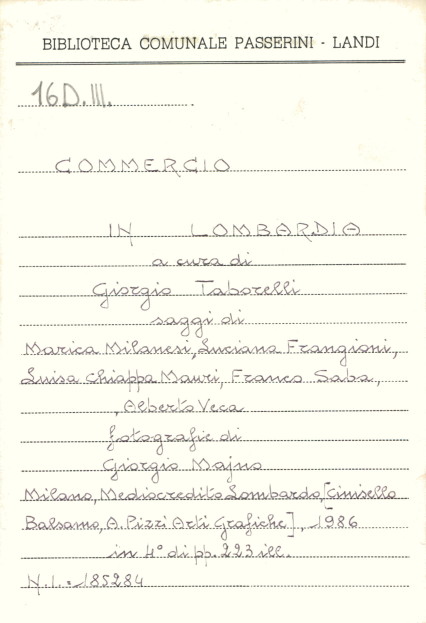 BIBLIOTECA COMUNALE PASSERINI - LANDI
16D.III.
COMMERCIO
IN LOMBARDIA
a cura di
Giorgio Taborelli
saggi di
Marica Milanesi, Luciana Frangioni,
Luisa Chiappa Mauri, Franco Saba,
, Alberto Veca
fotografie di
Giorgio Majno
Milano, Mediocredito Lombardo, [Cinisello
Balsamo, A. Pizzi Arti Grafiche], 1986
in 4° di pp. 223 ill.
N.I.: 185284